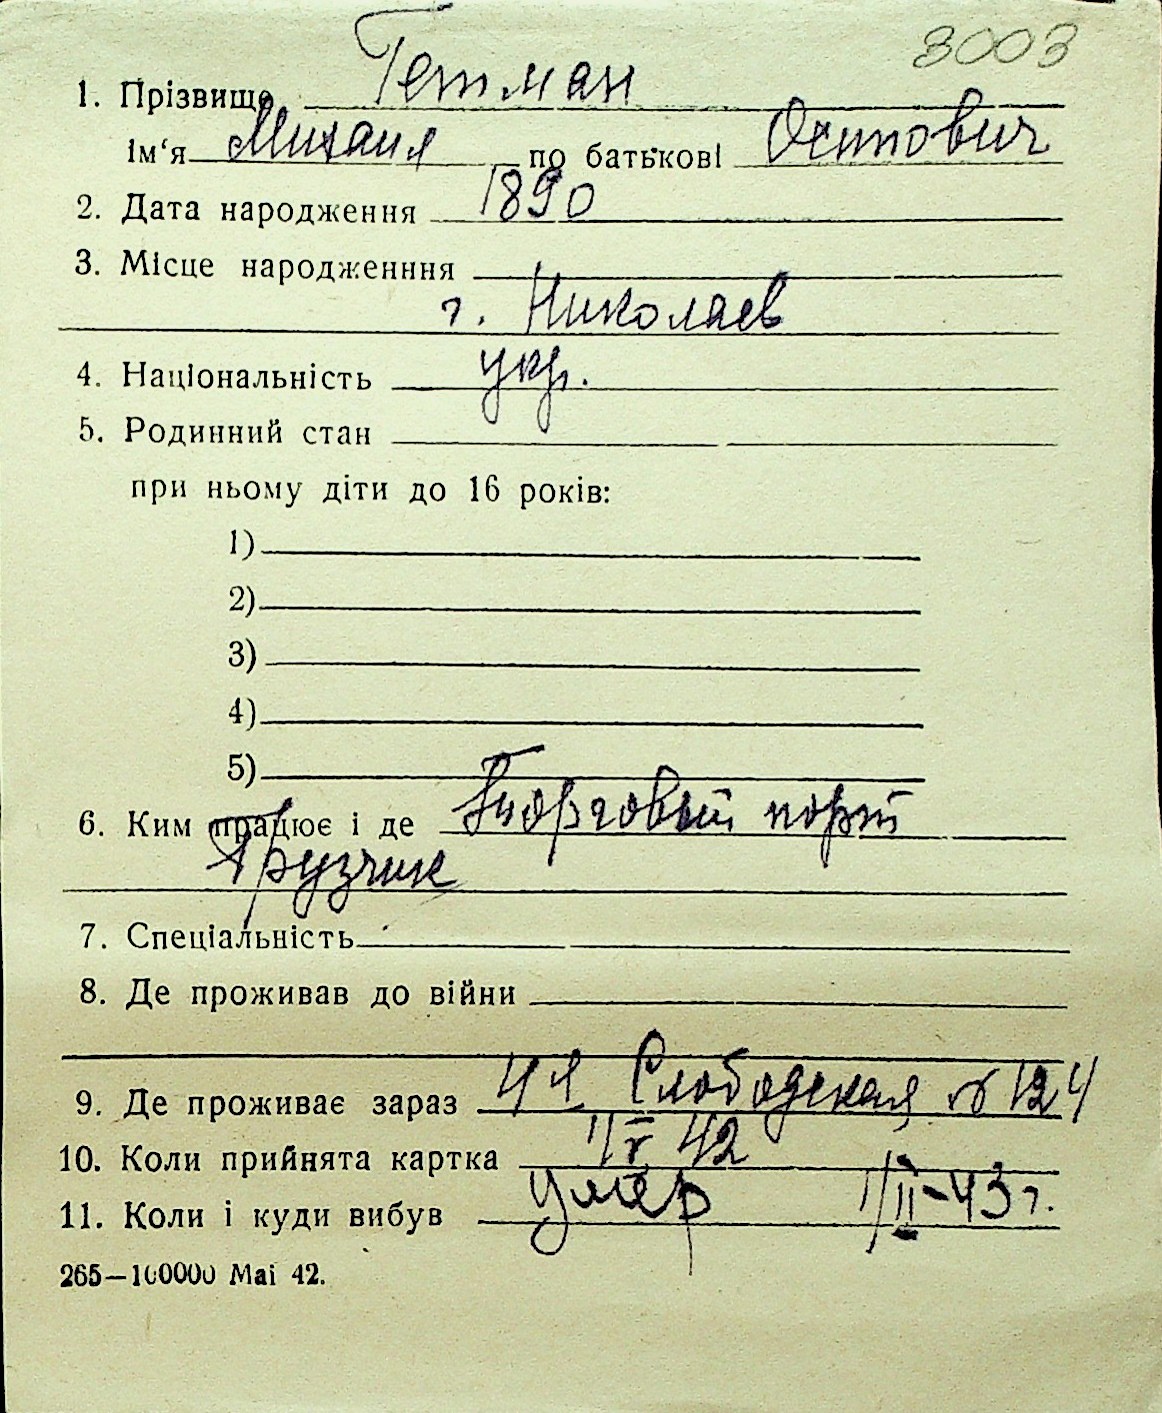 3003
1. Прізвище Гетман
Ім‘я Михаил по батькові Осипович
2. Дата народження 1890
3. Місце народженння
г. Николаев
4. Національність укр.
5. Родинний стан
при ньому діти до 16 років:
1)
2)
3)
4)
5)
6. Ким працює і де Торговый порт
Грузчик
7. Спеціальність
8. Де проживав до війни
9. Де проживає зараз 4я Слободская 124
10. Коли прийнята картка 42
11. Коли і куди вибув умер 1/II-43 г.
265—100000 Mai 42.